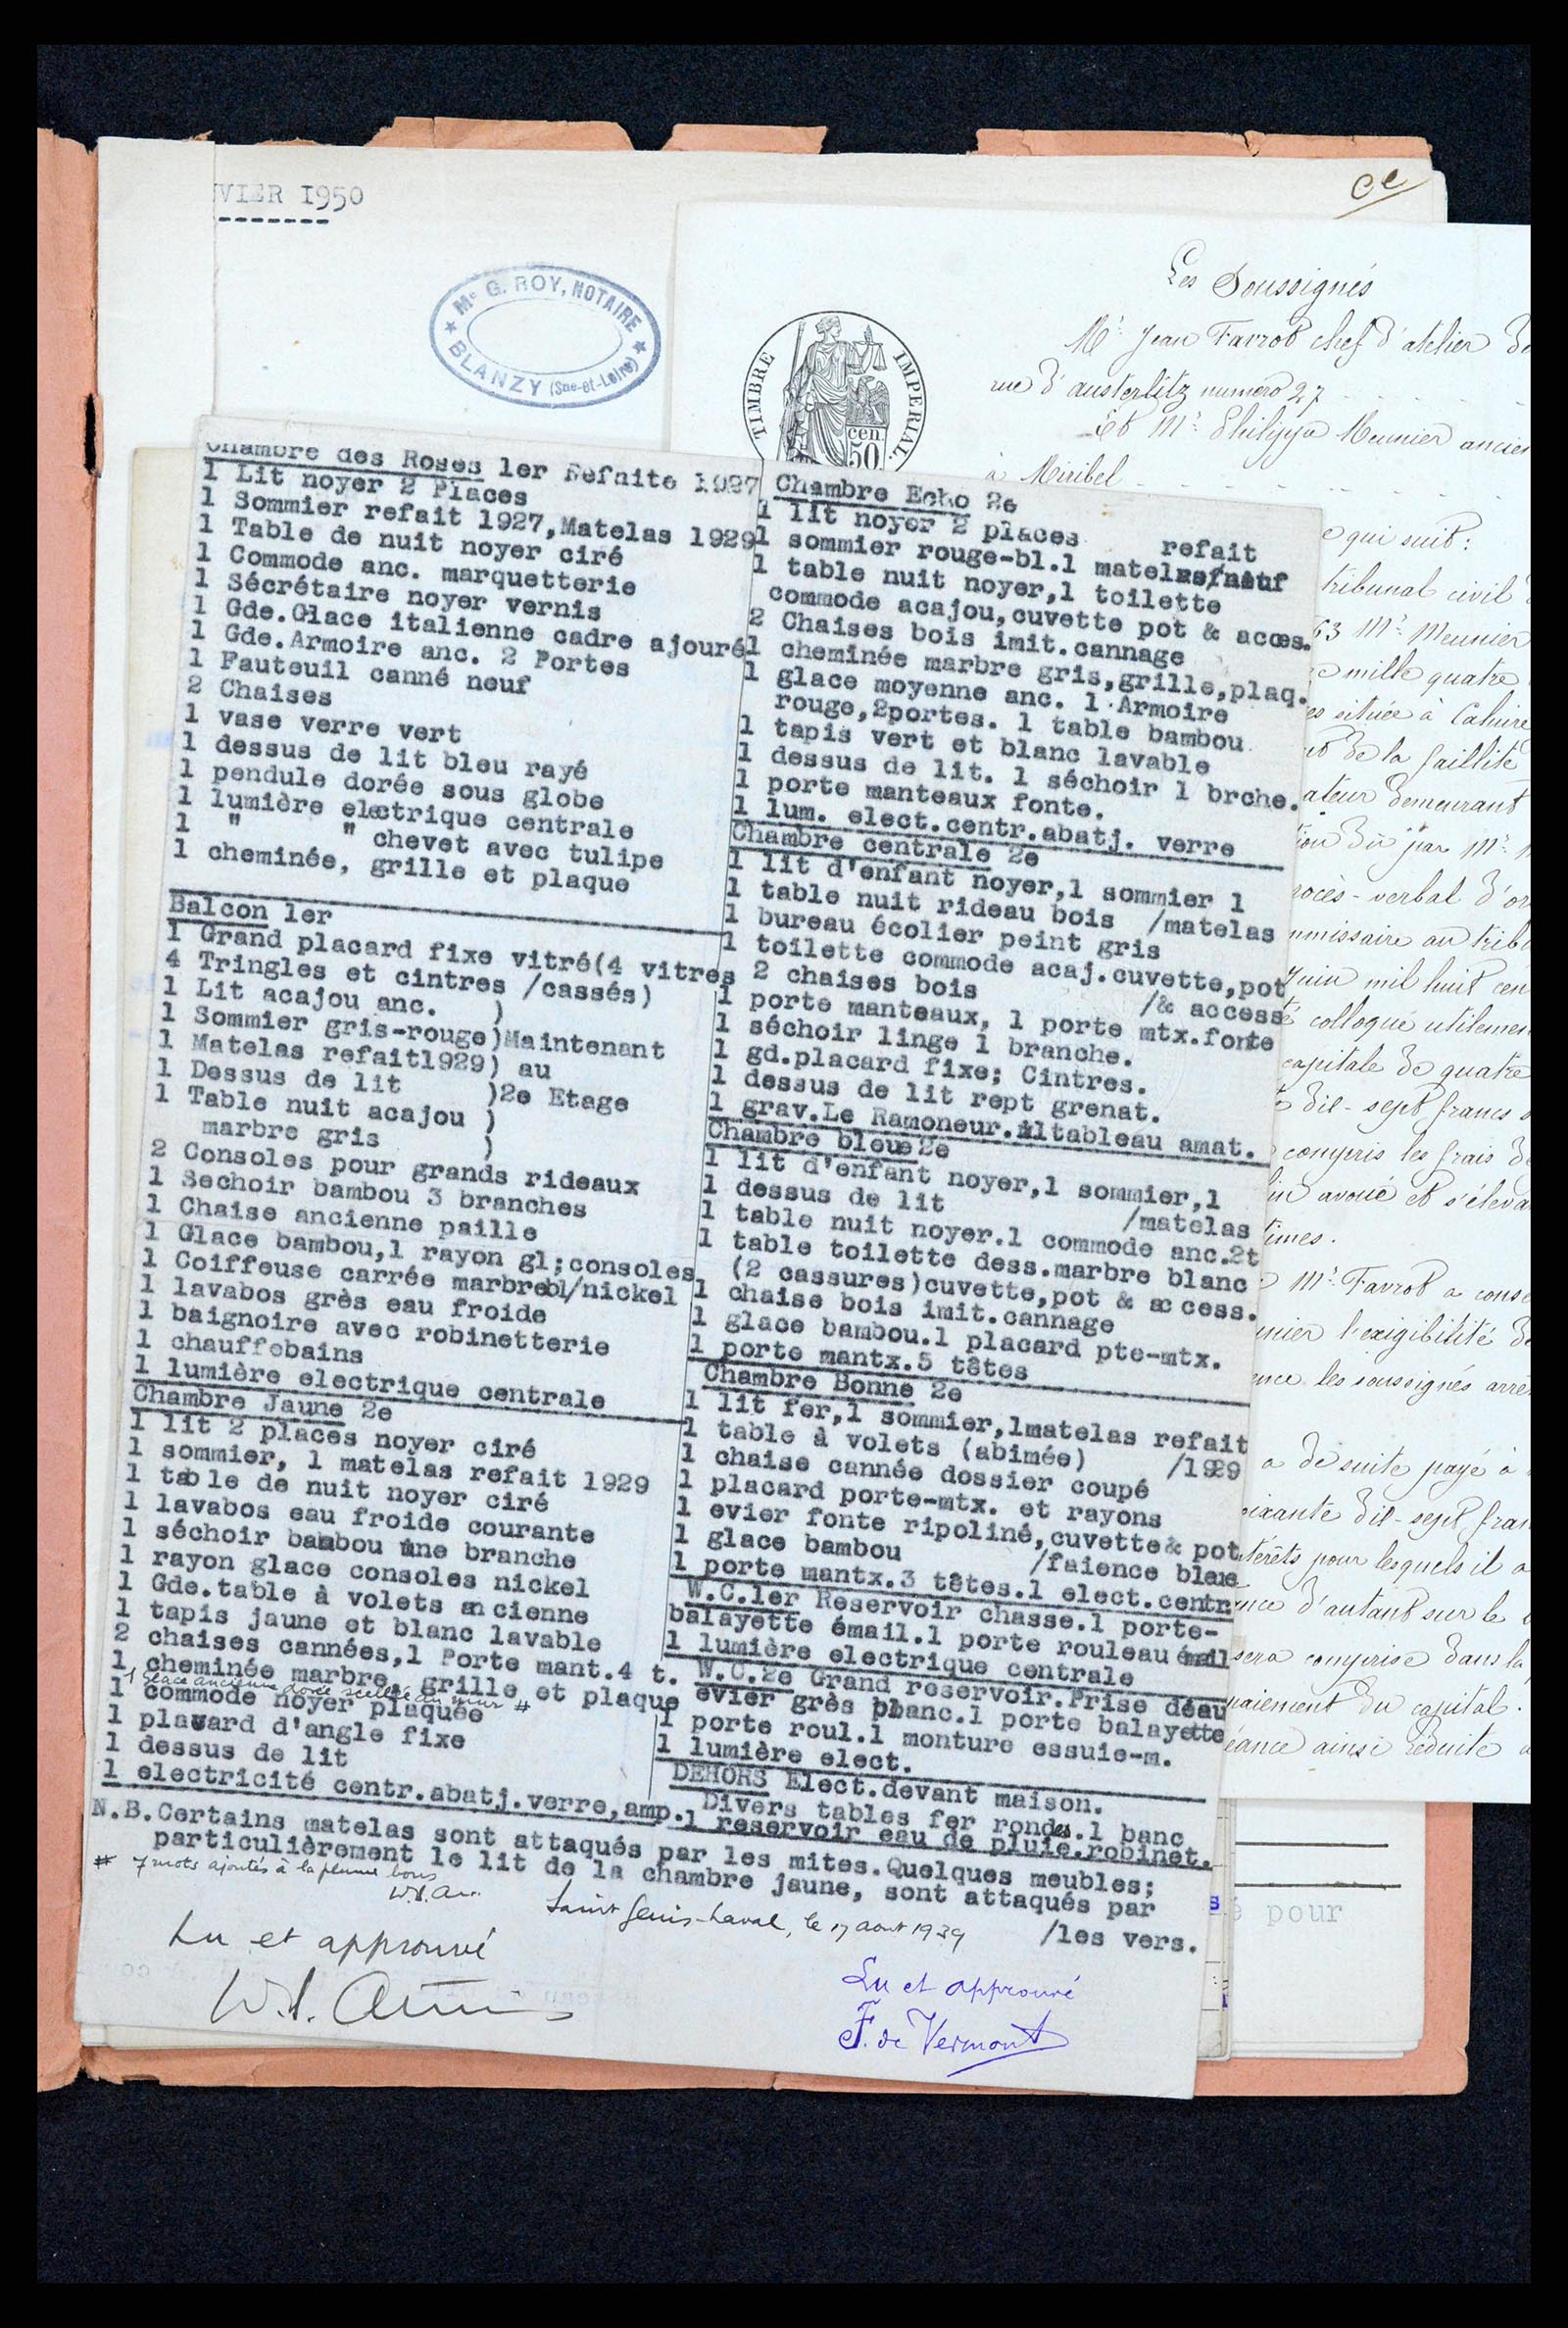 VIER 1950
Me G. ROY, NOTAIRE
BLANZY (Sne-et-Loire)
Les Soussignés
Mr Jean Favrot chef d'atelier
rue d'austerlitz numero 27
Et Mr Meunier ancien
à Miribel
TIMBRE IMPERIAL.
50 cen
qui suit:
tribunal civil
63 Mr Meunier
mille quatre
située à Caluire
de la faillite
demeurant
par Mr
procès-verbal d'or
juin mil huit cen
colloqué utilement
capitale de quatre
dix-sept francs
compris les frais
avoué et s'éleva
Mr Favrot a conse
l'exigibilité
les soussignés arrê
a de suite payé à
dix-sept fran
pour lesquels il a
d'autant sur le
sera comprise dans la
paiement du capital.
ainsi réduite
pour
Chambre des Roses 1er Refaite 1927
1 Lit noyer 2 Places
1 Sommier refait 1927,Matelas 1929
1 Table de nuit noyer ciré
1 Commode anc. marquetterie
1 Sécrétaire noyer vernis
1 Gde.Glace italienne cadre ajouré
1 Gde.Armoire anc. 2 Portes
1 Fauteuil canné neuf
2 Chaises
1 vase verre vert
1 dessus de lit bleu rayé
1 pendule dorée sous globe
1 lumière electrique centrale
1 " " chevet avec tulipe
1 cheminée, grille et plaque
Balcon 1er
1 Grand placard fixe vitré(4 vitres
4 Tringles et cintres /cassés)
1 Lit acajou anc. )
1 Sommier gris-rouge)Maintenant
1 Matelas refait1929) au
1 Dessus de lit )2e Etage
1 Table nuit acajou )
marbre gris )
2 Consoles pour grands rideaux
1 Sechoir bambou 3 branches
1 Chaise ancienne paille
1 Glace bambou,1 rayon gl;consoles
1 Coiffeuse carrée marbrebl/nickel
1 lavabos grès eau froide
1 baignoire avec robinetterie
1 chauffebains
1 lumière electrique centrale
Chambre Jaune 2e
1 lit 2 places noyer ciré
1 sommier, 1 matelas refait 1929
1 table de nuit noyer ciré
1 lavabos eau froide courante
1 séchoir bambou une branche
1 rayon glace consoles nickel
1 Gde.table à volets ancienne
1 tapis jaune et blanc lavable
2 chaises cannées,1 Porte mant.4 t.
1 cheminée marbre, grille et plaque
1 glace ancienne dorée scellée au mur #
1 commode noyer plaquée
1 placard d'angle fixe
1 dessus de lit
1 electricité centr.abatj.verre,amp.
Chambre Echo 2e
1 lit noyer 2 places refait
1 sommier rouge-bl.1 matelas/neuf
1 table nuit noyer,1 toilette
commode acajou,cuvette pot & acces.
2 Chaises bois imit.cannage
1 cheminée marbre gris,grille,plaq.
1 glace moyenne anc. 1 Armoire
rouge,2portes. 1 table bambou
1 tapis vert et blanc lavable
1 dessus de lit. 1 séchoir 1 brche.
1 porte manteaux fonte.
1 lum. elect.centr.abatj. verre
Chambre centrale 2e
1 lit d'enfant noyer,1 sommier 1
1 table nuit rideau bois /matelas
1 bureau écolier peint gris
1 toilette commode acaj.cuvette,pot
2 chaises bois /& access
1 porte manteaux, 1 porte mtx.fonte
1 séchoir linge 1 branche.
1 gd.placard fixe; Cintres.
1 dessus de lit rept grenat.
1 grav.Le Ramoneur.1tableau amat.
Chambre bleue2e
1 lit d'enfant noyer,1 sommier,1
1 dessus de lit /matelas
1 table nuit noyer.1 commode anc.2t
1 table toilette dess.marbre blanc
(2 cassures)cuvette,pot & access.
1 chaise bois imit.cannage
1 glace bambou.1 placard pte-mtx.
1 porte mantx.5 têtes
Chambre Bonne 2e
1 lit fer,1 sommier,1matelas refait
1 table à volets (abimée) /1929
1 chaise cannée dossier coupé
1 placard porte-mtx. et rayons
1 evier fonte ripoliné,cuvette& pot
1 glace bambou /faience bleue
1 porte mantx.3 têtes.1 elect.centr
W.C.1er Reservoir chasse.1 porte-
balayette émail.1 porte rouleau émail
1 lumière electrique centrale
W.C.2e Grand reservoir.Prise deau
evier grès blanc.1 porte balayette
1 porte roul.1 monture essuie-m.
1 lumière elect.
DEHORS Elect.devant maison.
Divers tables fer rondes.1 banc
1 reservoir eau de pluie.robinet.
N.B.Certains matelas sont attaqués par les mites.Quelques meubles;
particulièrement le lit de la chambre jaune, sont attaqués par
/les vers.
# 7 mots ajoutés à la plume bons
Saint Genis-Laval, le 17 aout 1939
Lu et approuvé
Lu et approuvé
F. de Vermont